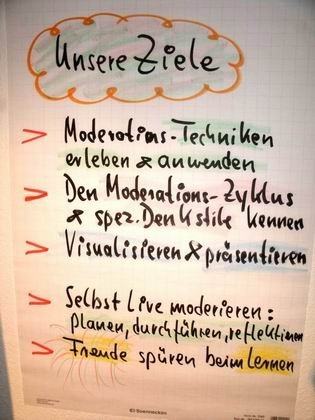 Unsere Ziele
> Moderations-Techniken
erleben & anwenden
> Den Moderations-Zyklus
& spez. Denkstile kennen
> Visualisieren & präsentieren
> Selbst Live moderieren:
planen, durchführen, reflektieren
> Freude spüren beim Lernen
Soennecken